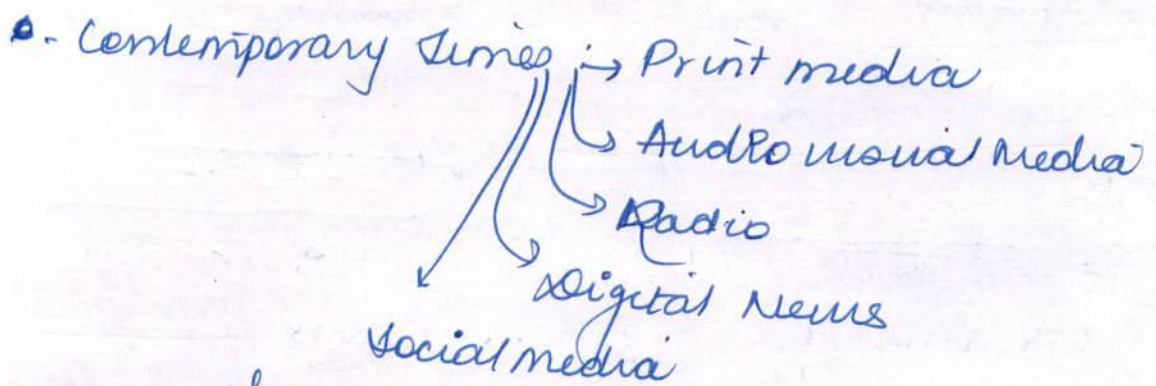 - Contemporary times :→ Print media
Audio visual media
Radio
Digital News
Social media